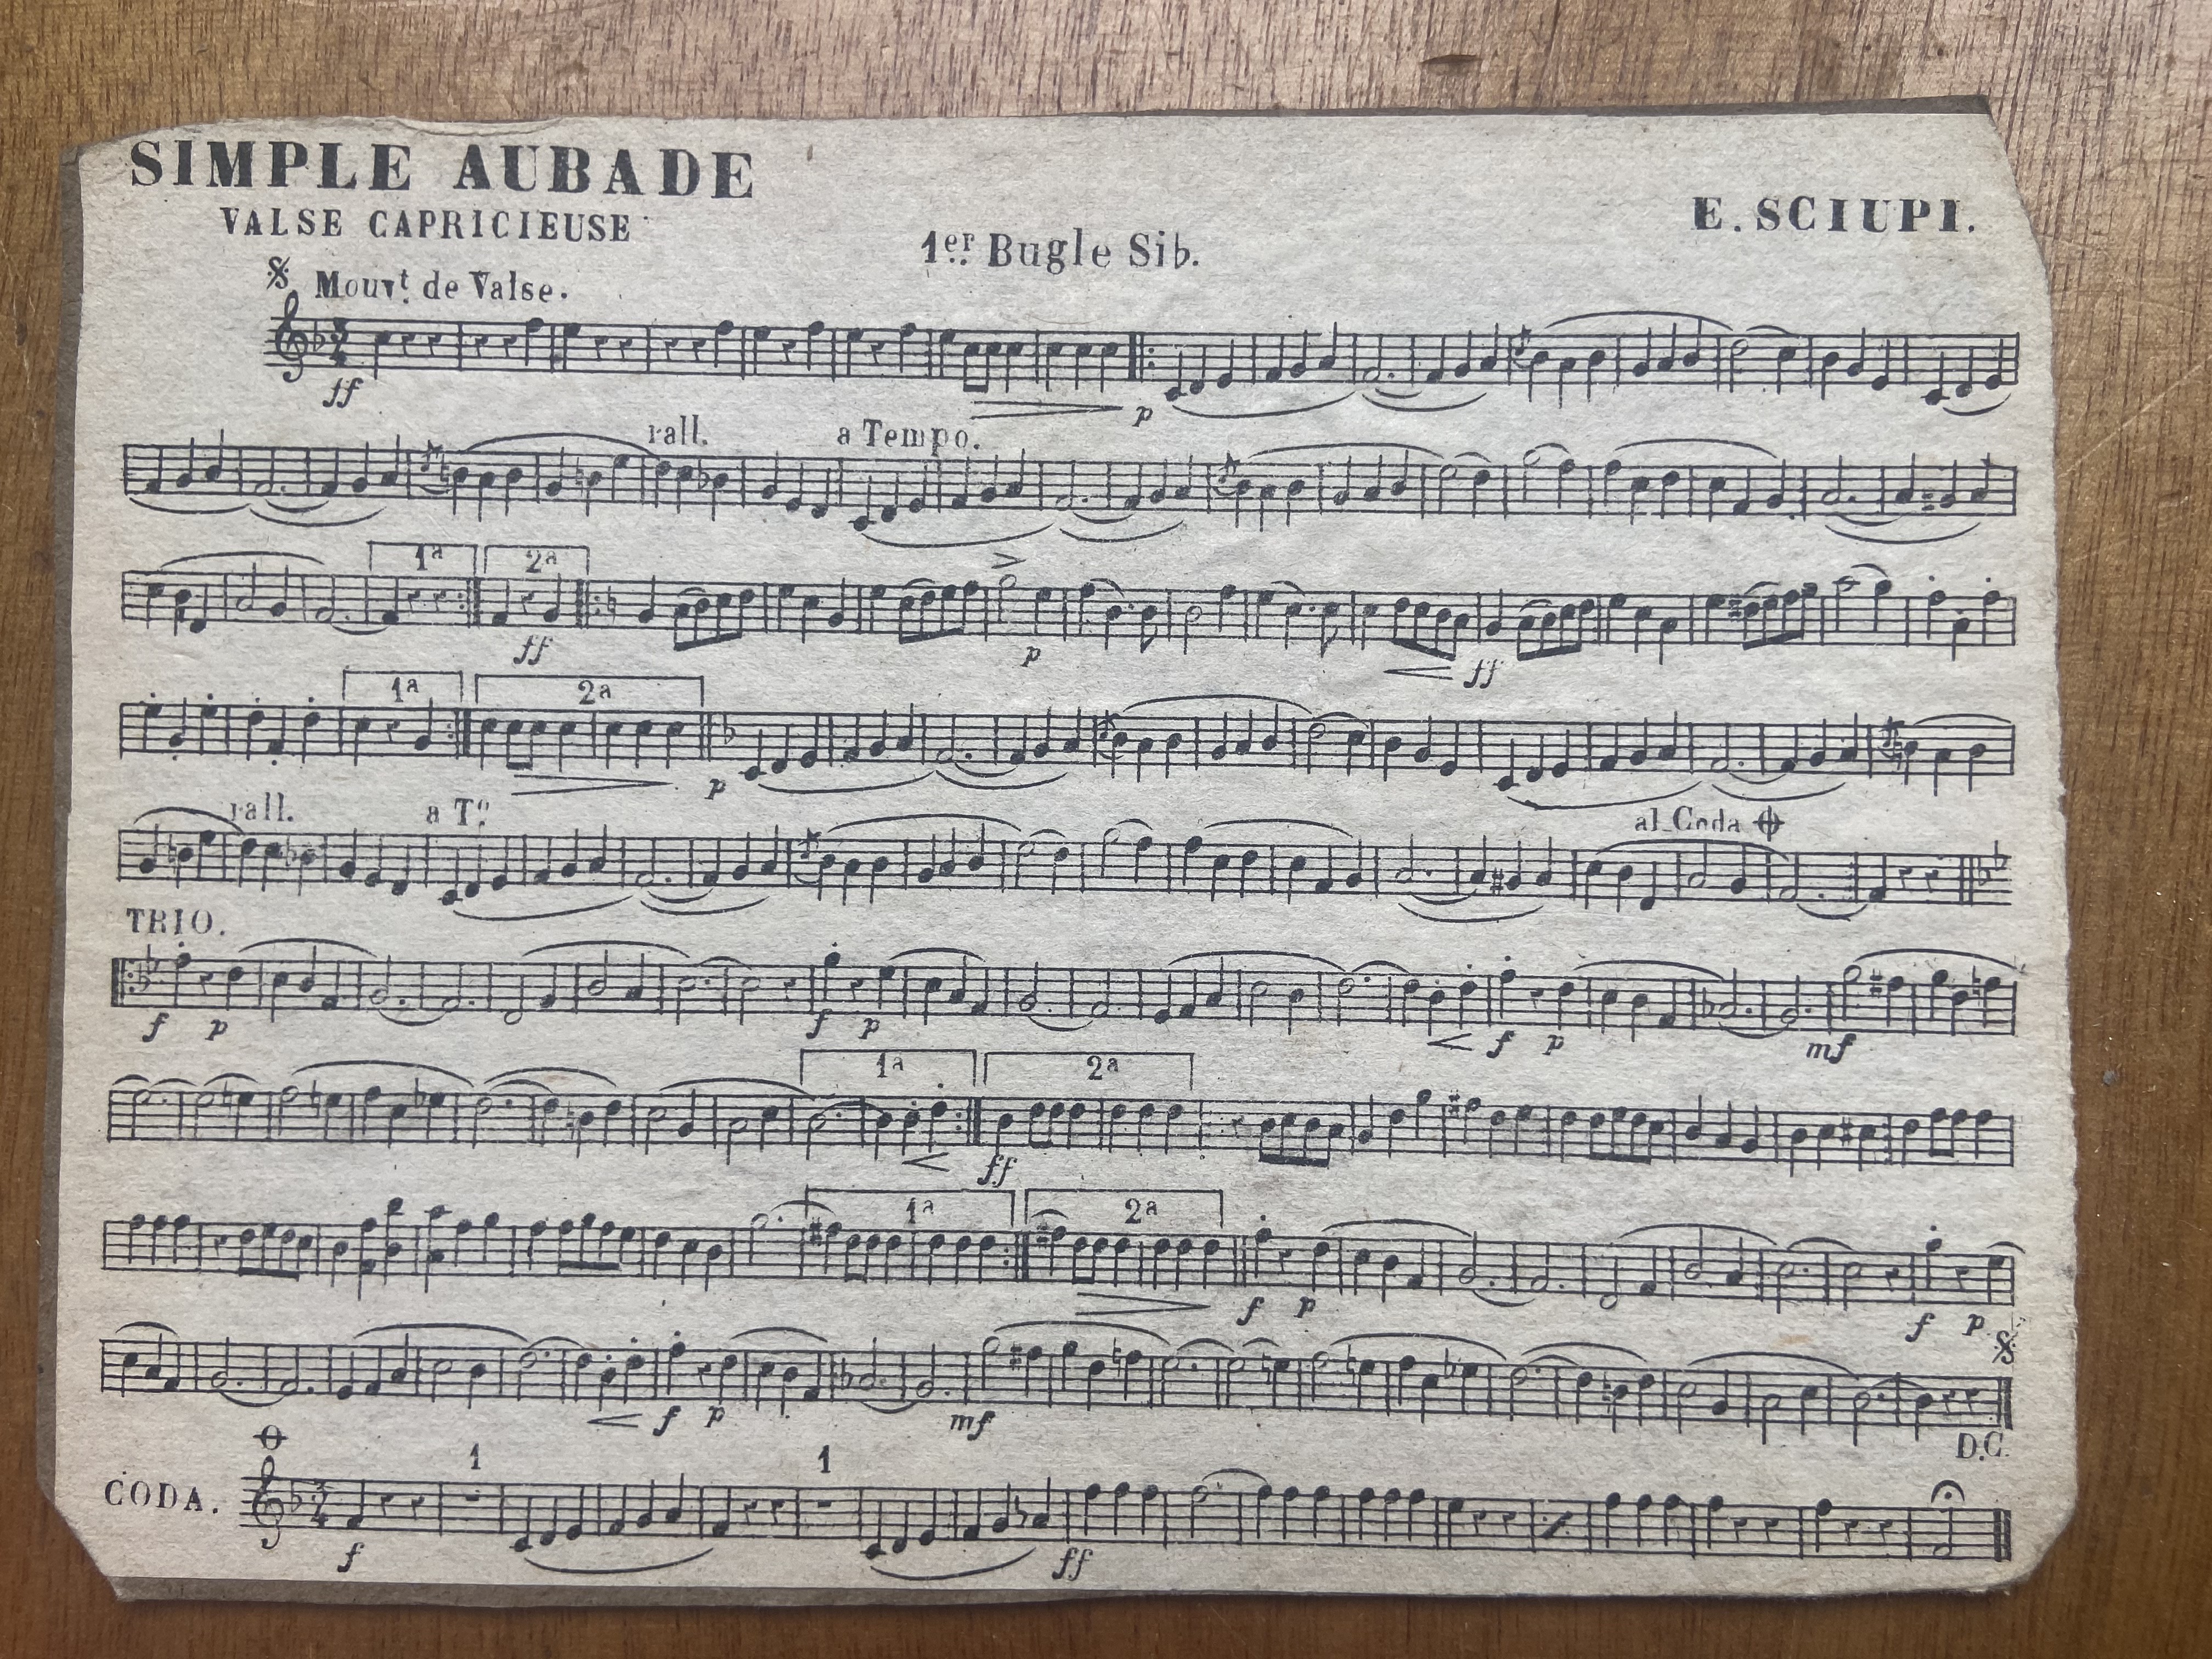 SIMPLE AUBADE
VALSE CAPRICIEUSE
E. SCIUPI.
1er Bugle Sib.
Mouvt. de Valse.
ff
p
rall.
a Tempo.
1a
2a
ff
p
ff
1a
2a
p
rall.
a To.
al Coda
TRIO.
f
p
f
p
f
p
mf
1a
2a
ff
1a
2a
f
p
f
p
f
p
mf
D.C.
1
1
CODA.
f
ff